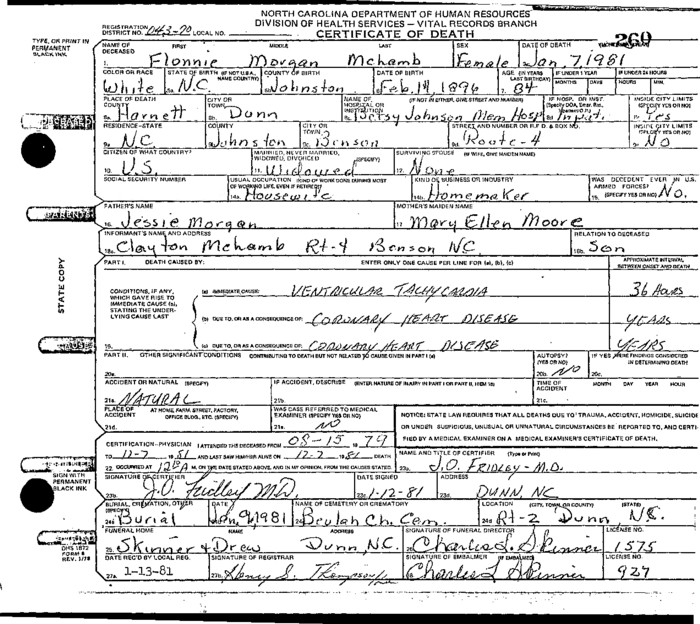 NORTH CAROLINA DEPARTMENT OF HUMAN RESOURCES
DIVISION OF HEALTH SERVICES – VITAL RECORDS BRANCH
CERTIFICATE OF DEATH
REGISTRATION DISTRICT NO. 043-70 LOCAL NO. 260
TYPE, OR PRINT IN PERMANENT BLACK INK
NAME OF DECEASED FIRST MIDDLE LAST SEX DATE OF DEATH
1. Flonnie Morgan McLamb Female Jan. 7, 1981
COLOR OR RACE STATE OF BIRTH (IF NOT U.S.A., NAME COUNTRY) COUNTY OF BIRTH DATE OF BIRTH AGE (IN YEARS LAST BIRTHDAY) IF UNDER 1 YEAR IF UNDER 24 HOURS
White N.C. Johnston Feb. 14, 1896 84 MONTHS DAYS HOURS MIN.
PLACE OF DEATH COUNTY CITY OR TOWN NAME OF HOSPITAL OR INSTITUTION (IF NOT IN EITHER, GIVE STREET AND NUMBER) IF HOSP. OR INST. INSIDE CITY LIMITS (SPECIFY YES OR NO)
Harnett Dunn Betsy Johnson Mem. Hosp. Inpat. Yes
RESIDENCE–STATE COUNTY CITY OR TOWN STREET AND NUMBER OR R.F.D. & BOX NO. INSIDE CITY LIMITS (SPECIFY YES OR NO)
N.C. Johnston Benson Route-4 No
CITIZEN OF WHAT COUNTRY? MARRIED, NEVER MARRIED, WIDOWED, DIVORCED (SPECIFY) SURVIVING SPOUSE (IF WIFE, GIVE MAIDEN NAME)
10. U.S. 11. Widowed 12. None
SOCIAL SECURITY NUMBER USUAL OCCUPATION (KIND OF WORK DONE DURING MOST OF WORKING LIFE, EVEN IF RETIRED) KIND OF BUSINESS OR INDUSTRY WAS DECEDENT EVER IN U.S. ARMED FORCES? (SPECIFY YES OR NO)
14a. Housewife 14b. Homemaker 15. No.
FATHER'S NAME MOTHER'S MAIDEN NAME
16. Jessie Morgan 17. Mary Ellen Moore
INFORMANT'S NAME AND ADDRESS RELATION TO DECEASED
18a. Clayton McLamb Rt-4 Benson NC 18b. Son
PART I. DEATH CAUSED BY: ENTER ONLY ONE CAUSE PER LINE FOR (a), (b), (c) APPROXIMATE INTERVAL BETWEEN ONSET AND DEATH
CONDITIONS, IF ANY, WHICH GAVE RISE TO IMMEDIATE CAUSE (a), STATING THE UNDERLYING CAUSE LAST
(a) IMMEDIATE CAUSE: VENTRICULAR TACHYCARDIA 36 Hours
(b) DUE TO, OR AS A CONSEQUENCE OF: CORONARY HEART DISEASE YEARS
19. (c) DUE TO, OR AS A CONSEQUENCE OF: CORONARY HEART DISEASE YEARS
PART II. OTHER SIGNIFICANT CONDITIONS CONTRIBUTING TO DEATH BUT NOT RELATED TO CAUSE GIVEN IN PART I (a) AUTOPSY? (YES OR NO) IF YES, WERE FINDINGS CONSIDERED IN DETERMINING DEATH?
20a. 20b. NO 20c.
ACCIDENT OR NATURAL (SPECIFY) IF ACCIDENT, DESCRIBE (ENTER NATURE OF INJURY IN PART I OR PART II, ITEM 18) TIME OF ACCIDENT MONTH DAY YEAR HOUR
21a. NATURAL 21b. 21c.
PLACE OF ACCIDENT AT HOME, FARM, STREET, FACTORY, OFFICE BLDG., ETC. (SPECIFY) WAS CASE REFERRED TO MEDICAL EXAMINER (SPECIFY YES OR NO) NO
NOTICE: STATE LAW REQUIRES THAT ALL DEATHS DUE TO TRAUMA, ACCIDENT, HOMICIDE, SUICIDE
OR UNDER SUSPICIOUS, UNUSUAL OR UNNATURAL CIRCUMSTANCES BE REPORTED TO, AND CERTI-
FIED BY A MEDICAL EXAMINER ON A MEDICAL EXAMINER'S CERTIFICATE OF DEATH.
CERTIFICATION–PHYSICIAN I ATTENDED THE DECEASED FROM 08-15-79
TO 12-7 1981 AND LAST SAW HIM/HER ALIVE ON 12-7 1981 DEATH
22. OCCURRED AT M. ON THE DATE STATED ABOVE, AND IN MY OPINION, FROM THE CAUSES STATED.
NAME AND TITLE OF CERTIFIER (Type or Print)
23a. J.O. FRIDLEY-M.D.
SIGNATURE OF CERTIFIER DATE SIGNED ADDRESS
23b. J.O. Fridley M.D. 23c. 1-12-81 23d. DUNN, NC
BURIAL, CREMATION, OTHER (SPECIFY) DATE NAME OF CEMETERY OR CREMATORY LOCATION (CITY, TOWN, OR COUNTY) (STATE)
24a. Burial Jan. 9, 1981 Beulah Ch. Cem. 24d. Rt-2 Dunn N.C.
FUNERAL HOME NAME ADDRESS SIGNATURE OF FUNERAL DIRECTOR LICENSE NO.
25. Skinner & Drew Dunn, N.C. Charles L. Skinner 1575
DATE REC'D BY LOCAL REG. SIGNATURE OF REGISTRAR SIGNATURE OF EMBALMER (IF EMBALMED) LICENSE NO.
27a. 1-13-81 27b. Charles L Skinner 927
STATE COPY
DECEASED
PARENTS
CAUSE
SIGN WITH PERMANENT BLACK INK
DHS 1872
FORM 8
REV. 1/78